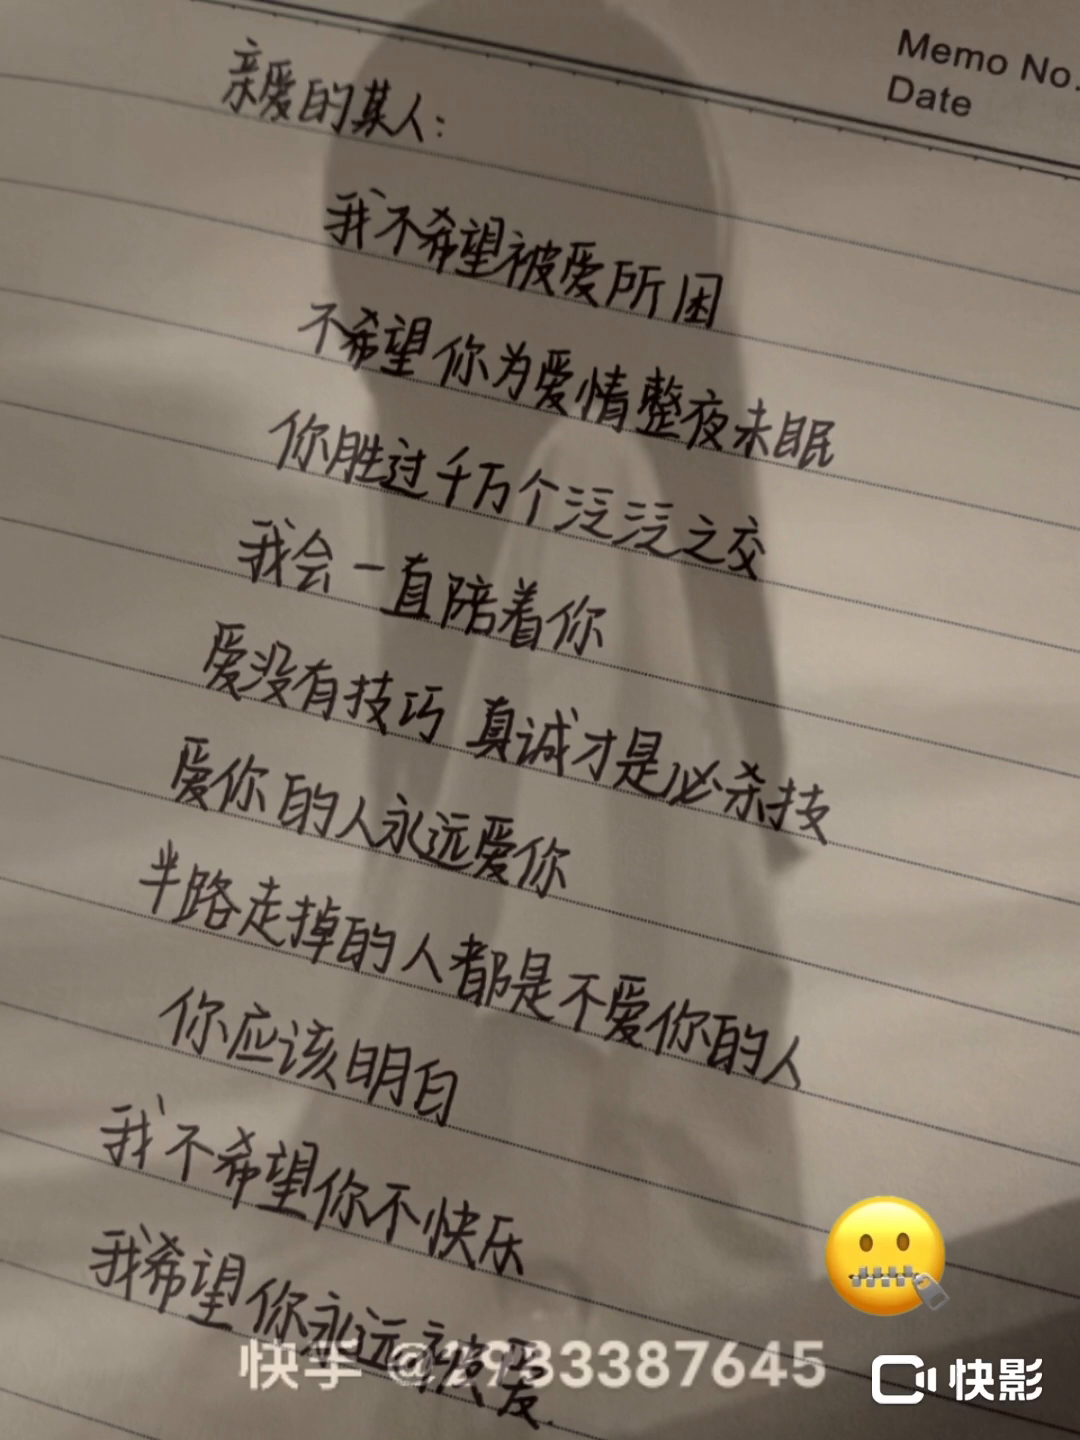 Memo No.
Date
亲爱的某人：
我不希望被爱所困
不希望你为爱情整夜未眠
你胜过千万个泛泛之交
我会一直陪着你
爱没有技巧 真诚才是必杀技
爱你的人永远爱你
半路走掉的人都是不爱你的人
你应该明白
我不希望你不快乐
我希望你永远被爱.
快手 @2983387645
快影